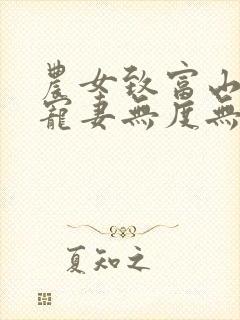 農女致富山
寵妻無度無
夏知之